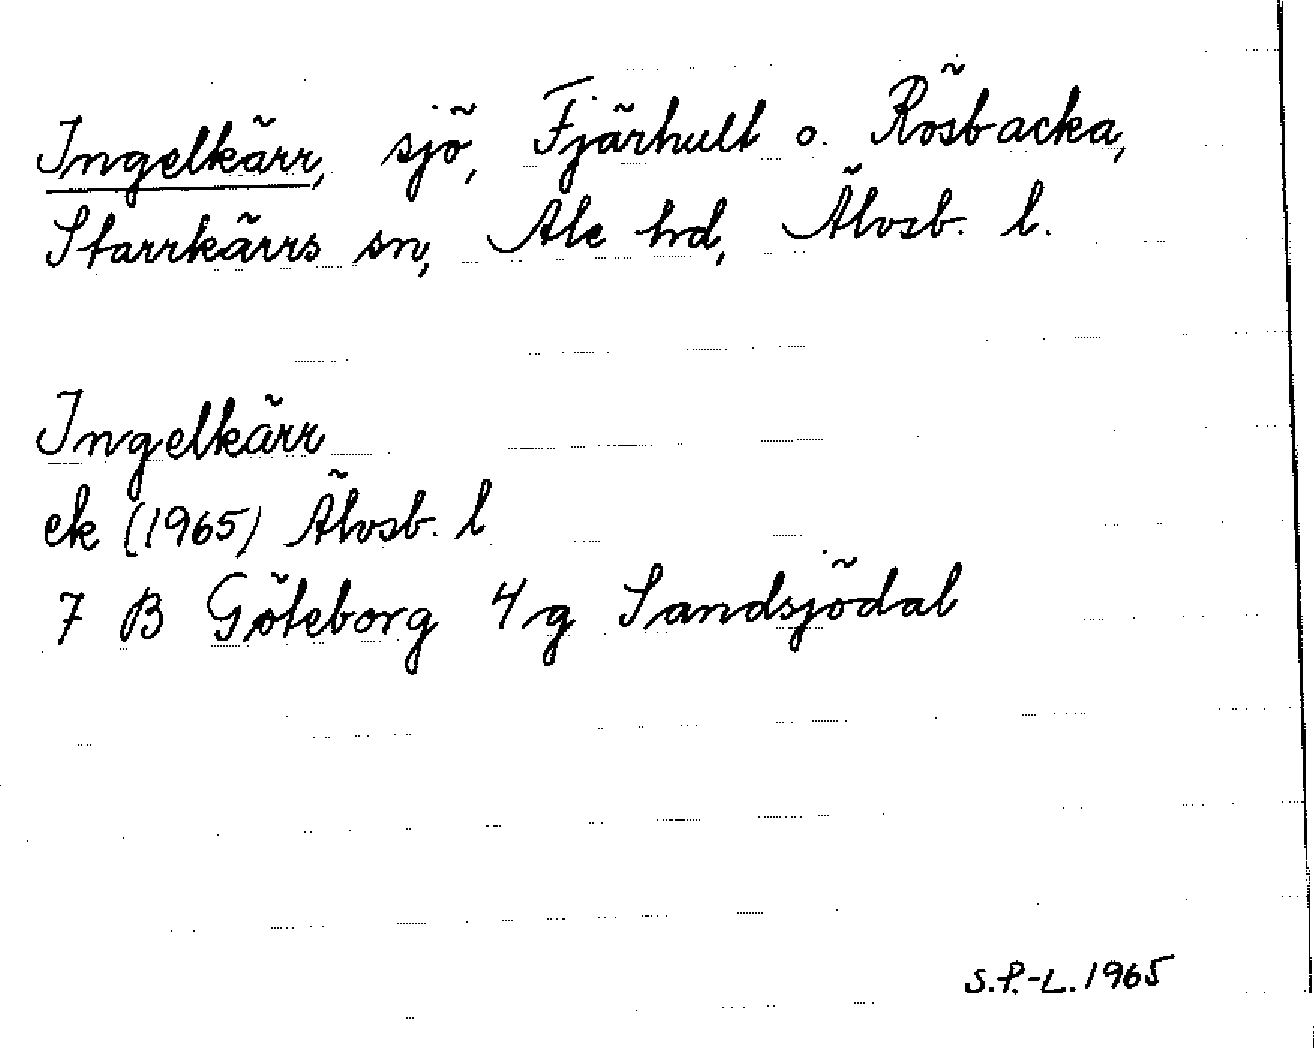 Ingelkärr, sjö, Fjärhult o. Rösbacka,
Starrkärrs sn, Ale hd, Älvsb. l.
Ingelkärr
ek (1965) Älvsb. l
7 B Göteborg 4 g Sandsjödal
S.P.-L. 1965